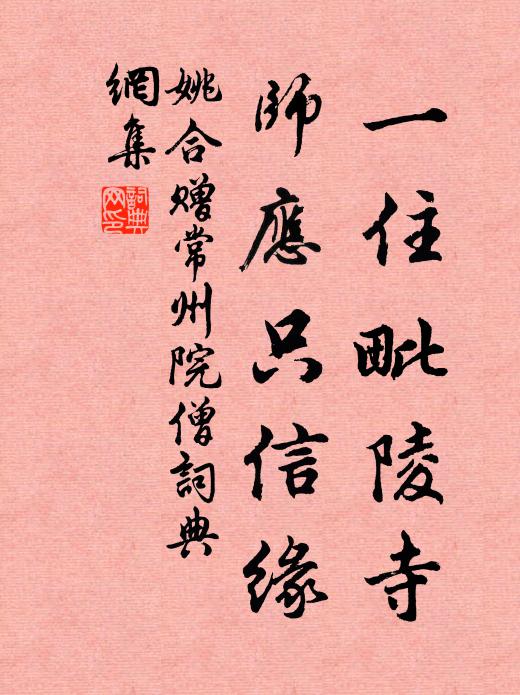 一住毗陵寺
師應只信緣
姚合贈常州院僧詞典
網集
詞典網印